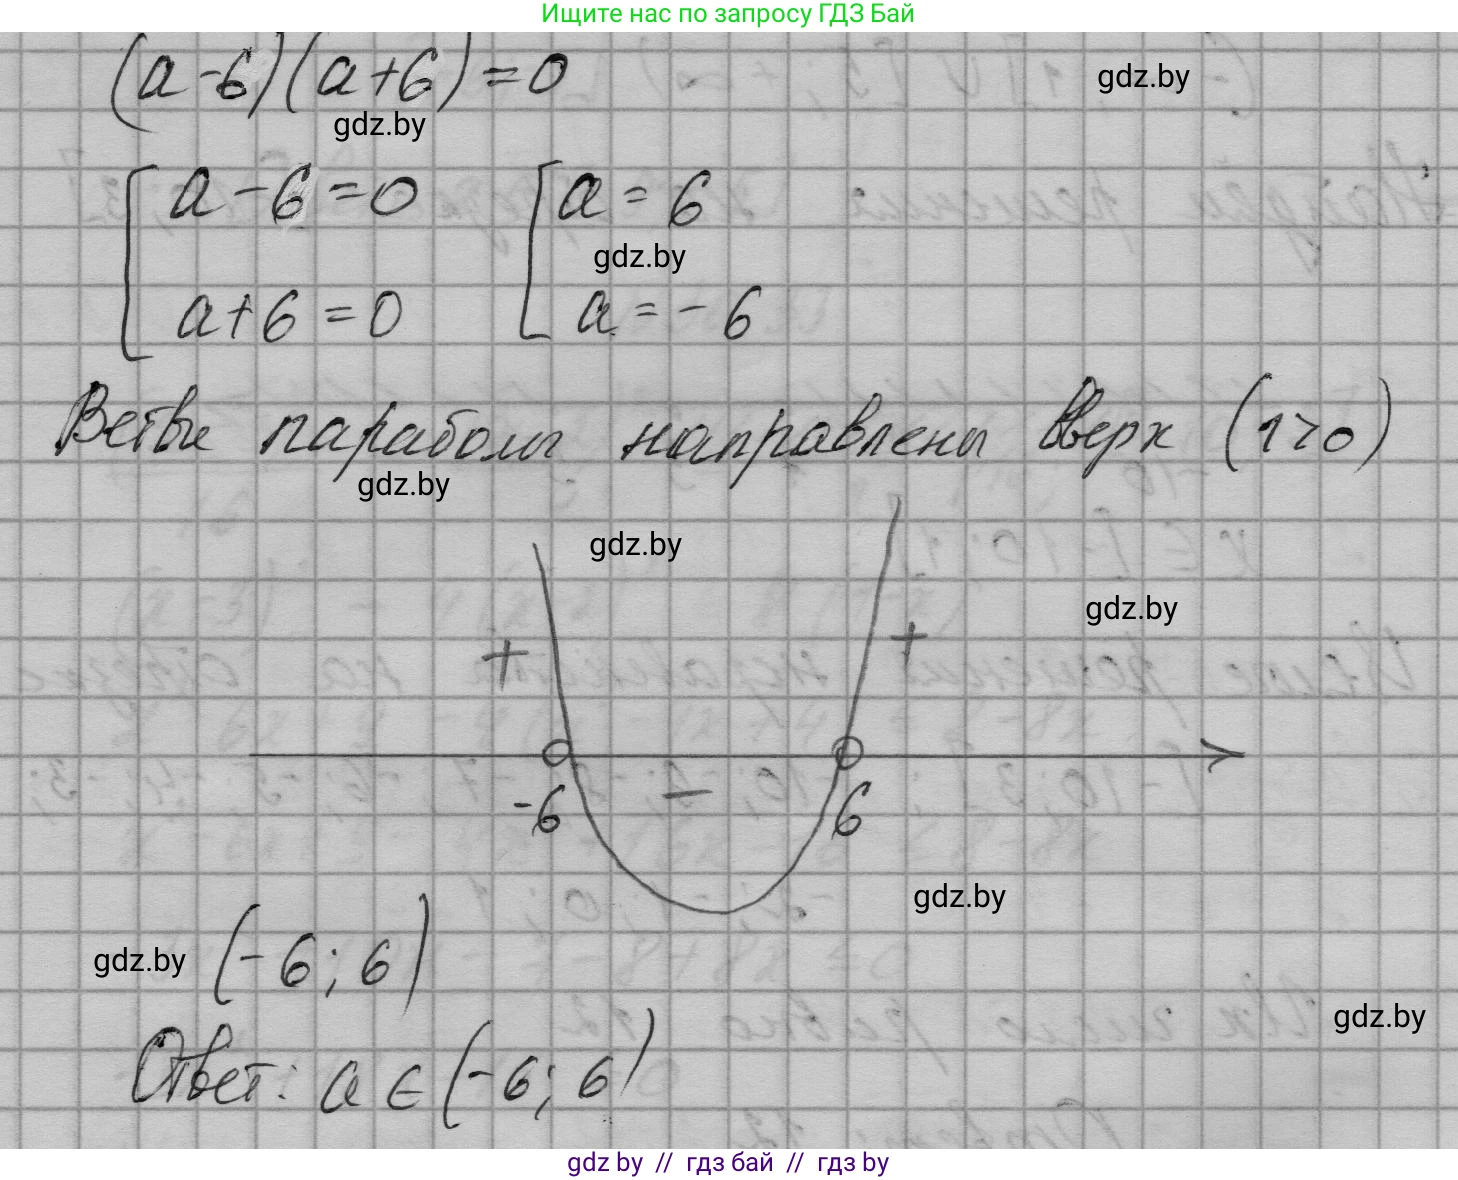 Ищите нас по запросу ГДЗ Бай
(a-6)(a+6)=0
gdz.by
gdz.by
a-6=0 a=6
gdz.by
a+6=0 a=-6
Ветви параболы направлены вверх (1>0)
gdz.by
gdz.by
gdz.by
+ +
-6 − 6
gdz.by
gdz.by (-6; 6)
gdz.by
Ответ: a∈(-6; 6)
gdz by // гдз бай // гдз by